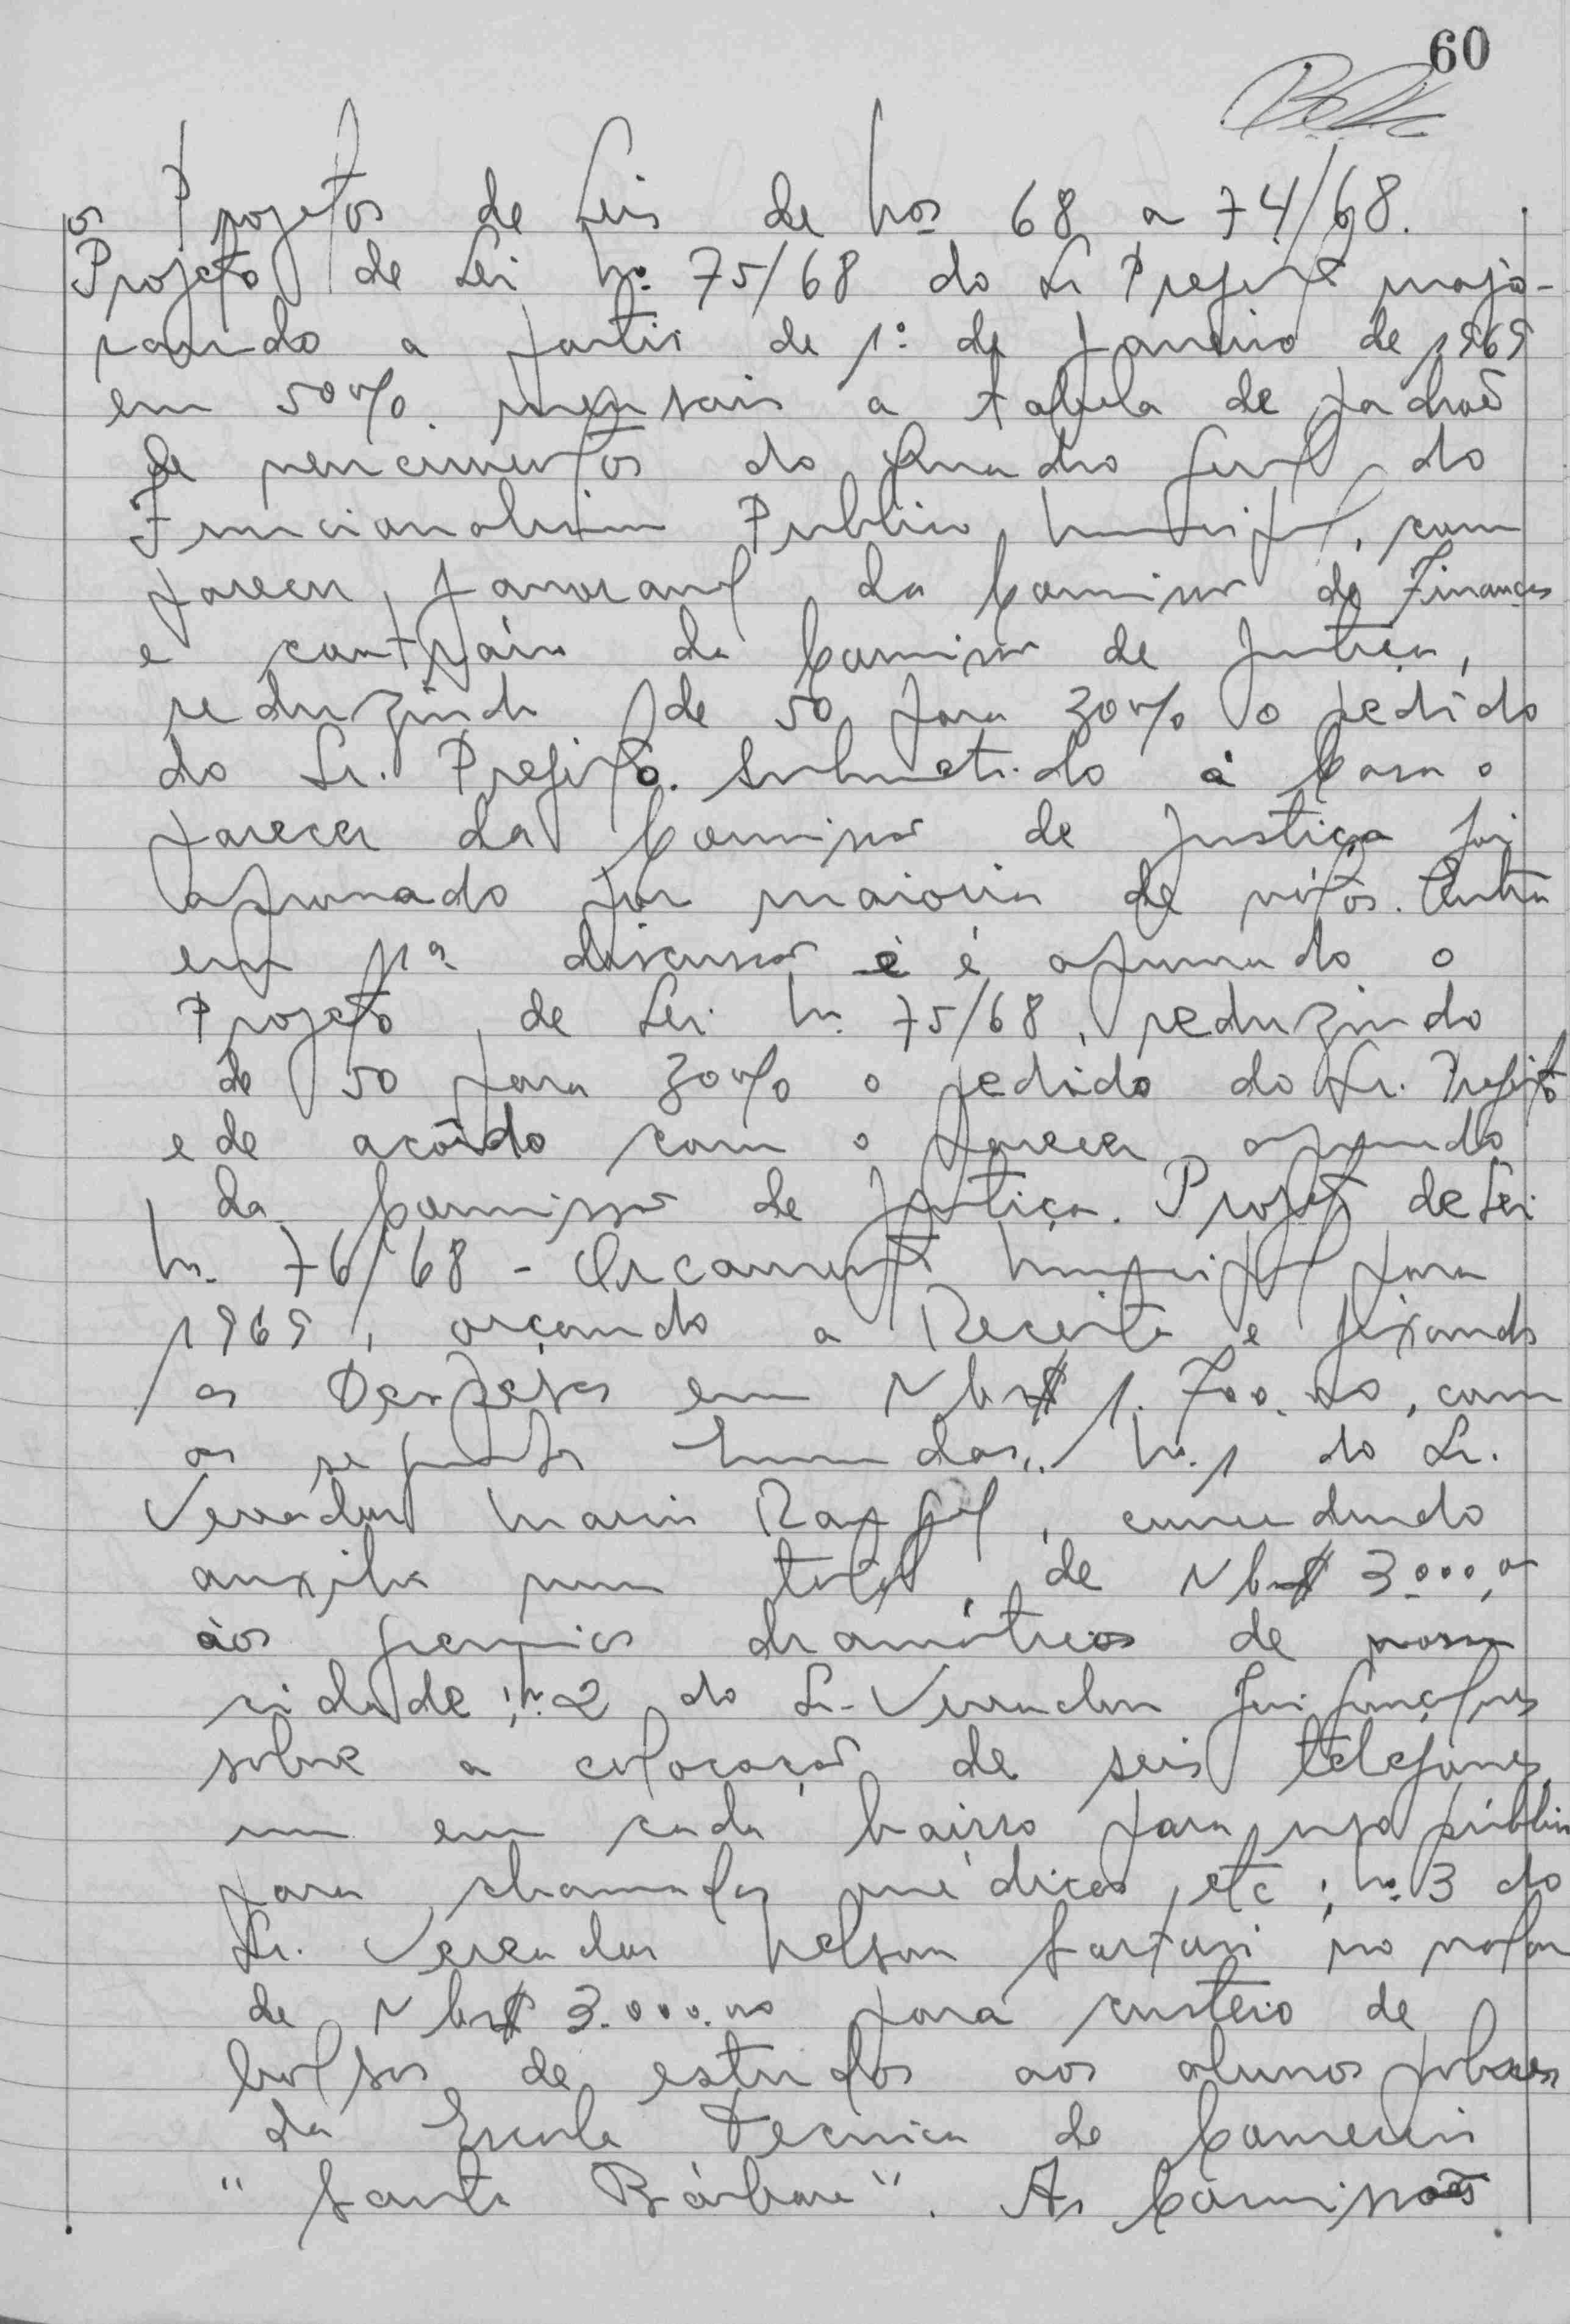 60
os Projetos de Leis de Nos 68 a 74/68.
Projeto de Lei Nº 75/68 do Sr Prefeito majo-
rando a partir de 1º de Janeiro de 1969
em 50%. mensais a tabela de padrão
de vencimentos do Quadro Geral do
Funcionalismo Publico Municipal, com
parecer favoravel da Comissão de Finanças
e contrário da Comissão de Justiça,
reduzindo de 50 para 30% o pedido
do Sr. Prefeito. Submetido à Casa o
parecer da Comissão de Justiça foi
aprovado por maioria de vótos. Entra
em 1ª discussão e é aprovado o
Projeto de Lei N. 75/68, reduzindo
de 50 para 30% o pedido do Sr. Prefeito
e de acôrdo com o parecer aprovado
da Comissão de Justiça. Projeto de Lei
N. 76/68 - Orçamento Municipal para
1969, orçando a Receita e fixando
as Despesas em NCr$ 1.700.000, com
as seguintes Emendas: Nº.1 do Sr.
Vereador Mario Rangel, concedendo
auxilio num total de NCr$ 3.000,00
áos gremios dramáticos de nossa
cidade; Nº 2 do Sr. Vereador
sobre a colocação de seis telefones,
um em cada bairro para uso público
para chamadas médicas, etc; Nº 3 do
Sr. Vereador Nelson Sartori no valor
de NCr$ 3.000.00 para custeio de
bolsas de estudos aos alunos pobres
da Escola Tecnica de Comercio
"Santa Bárbara". As Comissões